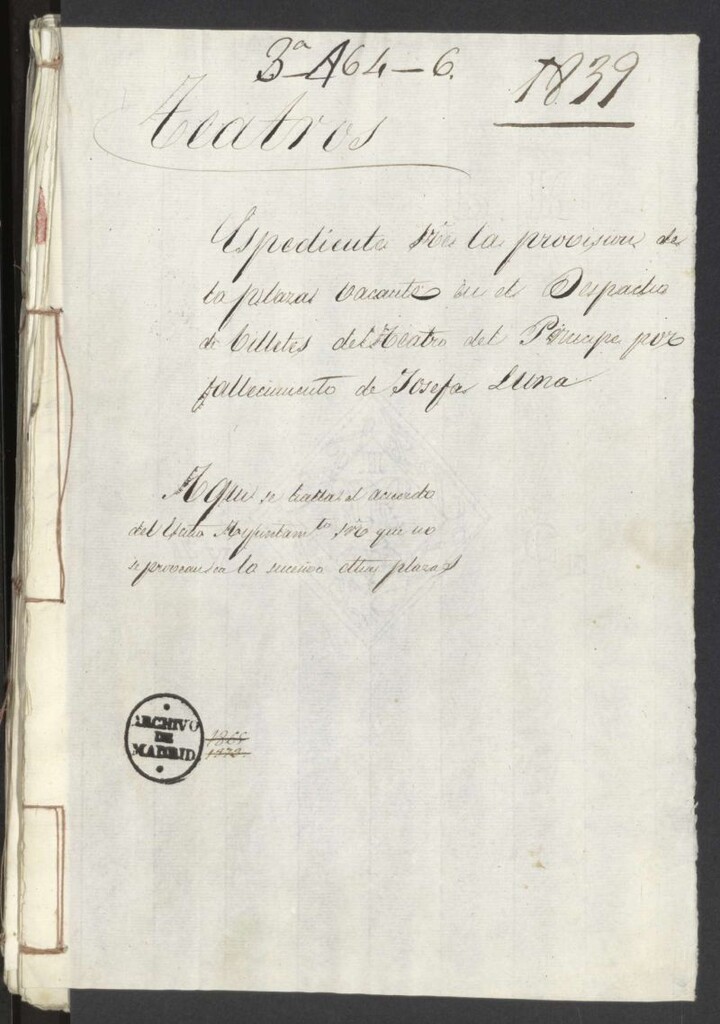 3ª-464-6.
1839
Teatros
Espediente sre la provision de
la plaza vacante en el Despacho
de billetes del Teatro del Principe por
fallecimiento de Josefa Luna
Aqui se trata el acuerdo
del Escmo Ayuntamto sre que no
se provean en lo sucesivo otras plazas
ARCHIVO
DE
MADRID